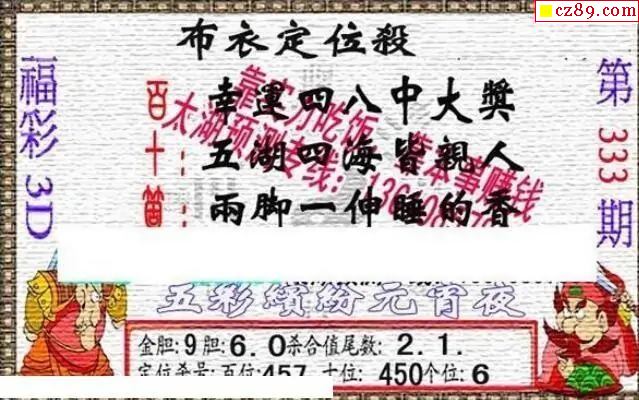 cz89.com
布衣定位殺
福彩3D
第333期
百十個
幸運四八中大獎
五湖四海皆親人
兩脚一伸睡的香
靠实力吃饭 靠本事赚钱
太湖预测专线：
五彩缤纷元宵夜
金胆:9胆:6.0杀合值尾数:2.1.
定位杀号:百位:457 十位:450个位:6